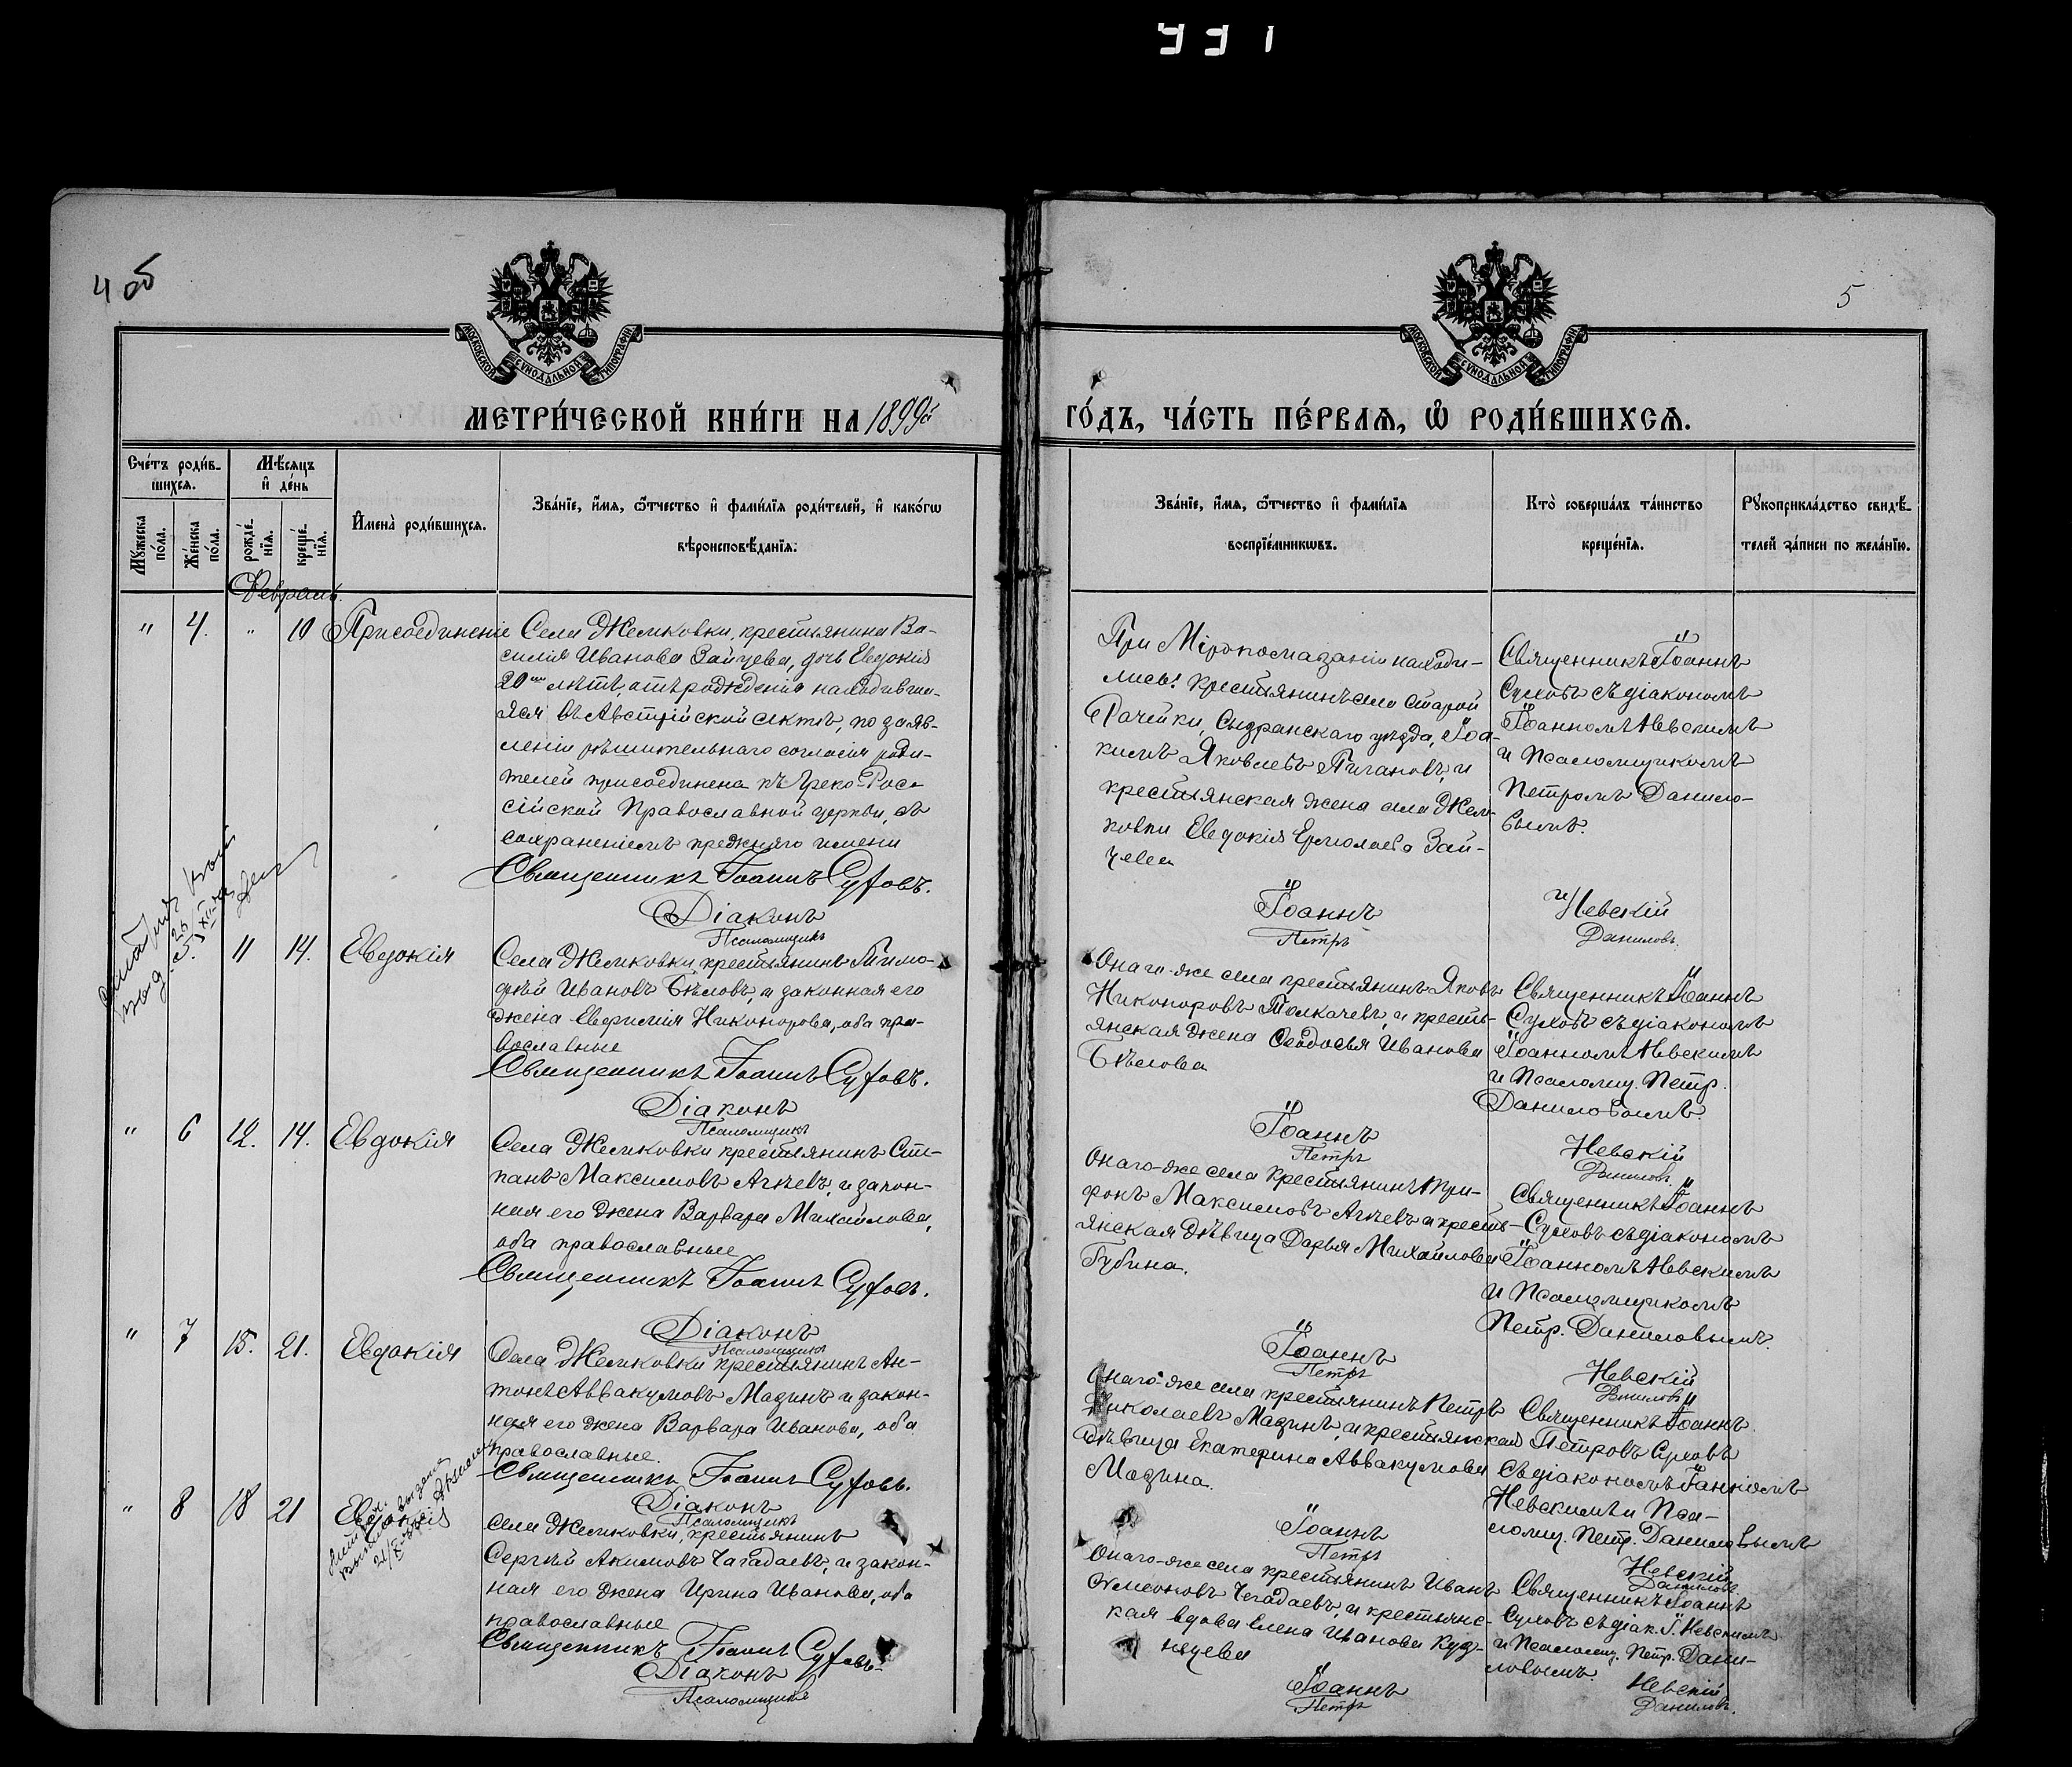 4 об
5
МЕТРИ́ЧЕСКОЙ КНИ́ГИ НА 1899й
ГО́ДЪ, ЧА́СТЬ ПЕ́РВАЯ, Ѡ҆ РОДИ́ВШИХСЯ.
Сче́тъ роди́в-
шихся.
Мѣ́сяцъ
и҆ де́нь
Мꙋ́жеска
по́ла.
Же́нска
по́ла.
рожде́-
нїя.
креще́-
нїя.
И҆мена̀ роди́вшихся.
Зва́нїе, и҆́мя, ѻ҆́тчество и҆ фами́лїя роди́телей, и҆ како́гѡ
вѣроисповѣ́данїя.
Зва́нїе, и҆́мя, ѻ҆́тчество и҆ фами́лїя
воспрїе́мникѡвъ.
Кто̀ соверша́лъ та́инство
креще́нїя.
Рꙋкоприкла́дство свидѣ́-
телей за́писи по жела́нїю.
Февраль.
" 4. " 10 Присоединеніе
Села Жемковки, крестьянина Ва-
силія Иванова Зайцева, дочь Евдокія
20ти лѣтъ, отъ рожденія находивша-
яся въ Австрійской сектѣ, по заяв-
леніи рѣшительнаго согласія роди-
телей присоединена къ Греко-Рос-
сійской Православной церкви, съ
сохраненіемъ прежняго имени
Священникъ Іоаннъ Суховъ.
Діаконъ
Псаломщикъ
При Мѵропомазаніи находи-
лись: крестьянинъ села Старой
Рачейки, Сызранскаго уѣзда, Іоа-
кимъ Яковлевъ Пигановъ, и
крестьянская жена села Жем-
ковки Евдокія Ермолаева Зай-
цева
Іоаннъ
Петръ
Священникъ Іоаннъ
Суховъ съ діакономъ
Іоанномъ Невскимъ
и Псаломщикомъ
Петромъ Данило-
вымъ.
Невскій
Даниловъ.
5. 11 14. Евдокія
Села Жемковки, крестьянинъ Тимо-
фей Ивановъ Бѣловъ, и законная его
жена Евфимія Никонорова, оба пра-
вославные
Священникъ Іоаннъ Суховъ.
Діаконъ
Псаломщикъ
Онаго-же села крестьянинъ Яковъ
Никоноровъ Толкачевъ, и кресть-
янская жена Ѳеодосья Иванова
Бѣлова
Іоаннъ
Петръ
Священникъ Іоаннъ
Суховъ съ діакономъ
Іоанномъ Невскимъ
и Псаломщ. Петр.
Даниловымъ.
Невскій
Даниловъ.
" 6 12. 14. Евдокія
Села Жемковки крестьянинъ Сте-
панъ Максимовъ Агѣевъ, и закон-
ная его жена Варвара Михайлова,
оба православные
Священникъ Іоаннъ Суховъ.
Діаконъ
Псаломщикъ
Онаго-же села крестьянинъ Три-
фонъ Максимовъ Агѣевъ и кресть-
янская дѣвица Дарья Михайлова
Губина.
Іоаннъ
Петръ
Священникъ Іоаннъ
Суховъ съ діакономъ
Іоанномъ Невскимъ
и Псаломщикомъ
Петр. Даниловымъ.
Невскій
Даниловъ
" 7 15. 21. Евдокія
Села Жемковки крестьянинъ Ан-
тонъ Аввакумовъ Мазинъ и закон-
ная его жена Варвара Иванова, оба
православные.
Священникъ Іоаннъ Суховъ.
Діаконъ
Псаломщикъ
Онаго-же села крестьянинъ Петръ
Николаевъ Мазинъ, и крестьянская
дѣвица Екатерина Аввакумова
Мазина.
Іоаннъ
Петръ
Священникъ Іоаннъ
Петровъ Суховъ
съ діакономъ Іоанномъ
Невскимъ и Пса-
ломщ. Петр. Даниловымъ
Невскій
Даниловъ
" 8 18 21 Евдокія
Села Жемковки, крестьянинъ
Сергѣй Акимовъ Чагадаевъ, и закон-
ная его жена Ирина Иванова, оба
православные
Священникъ Іоаннъ Суховъ.
Діаконъ
Псаломщикъ
Онаго-же села крестьянинъ Иванъ
Симеоновъ Чегадаевъ, и крестьянс-
кая вдова Елена Иванова Куз-
нецова
Іоаннъ
Петръ
Священникъ Іоаннъ
Суховъ съ діак. І. Невскимъ
и Псаломщ. Петр. Дани-
ловымъ.
Невскій
Даниловъ.